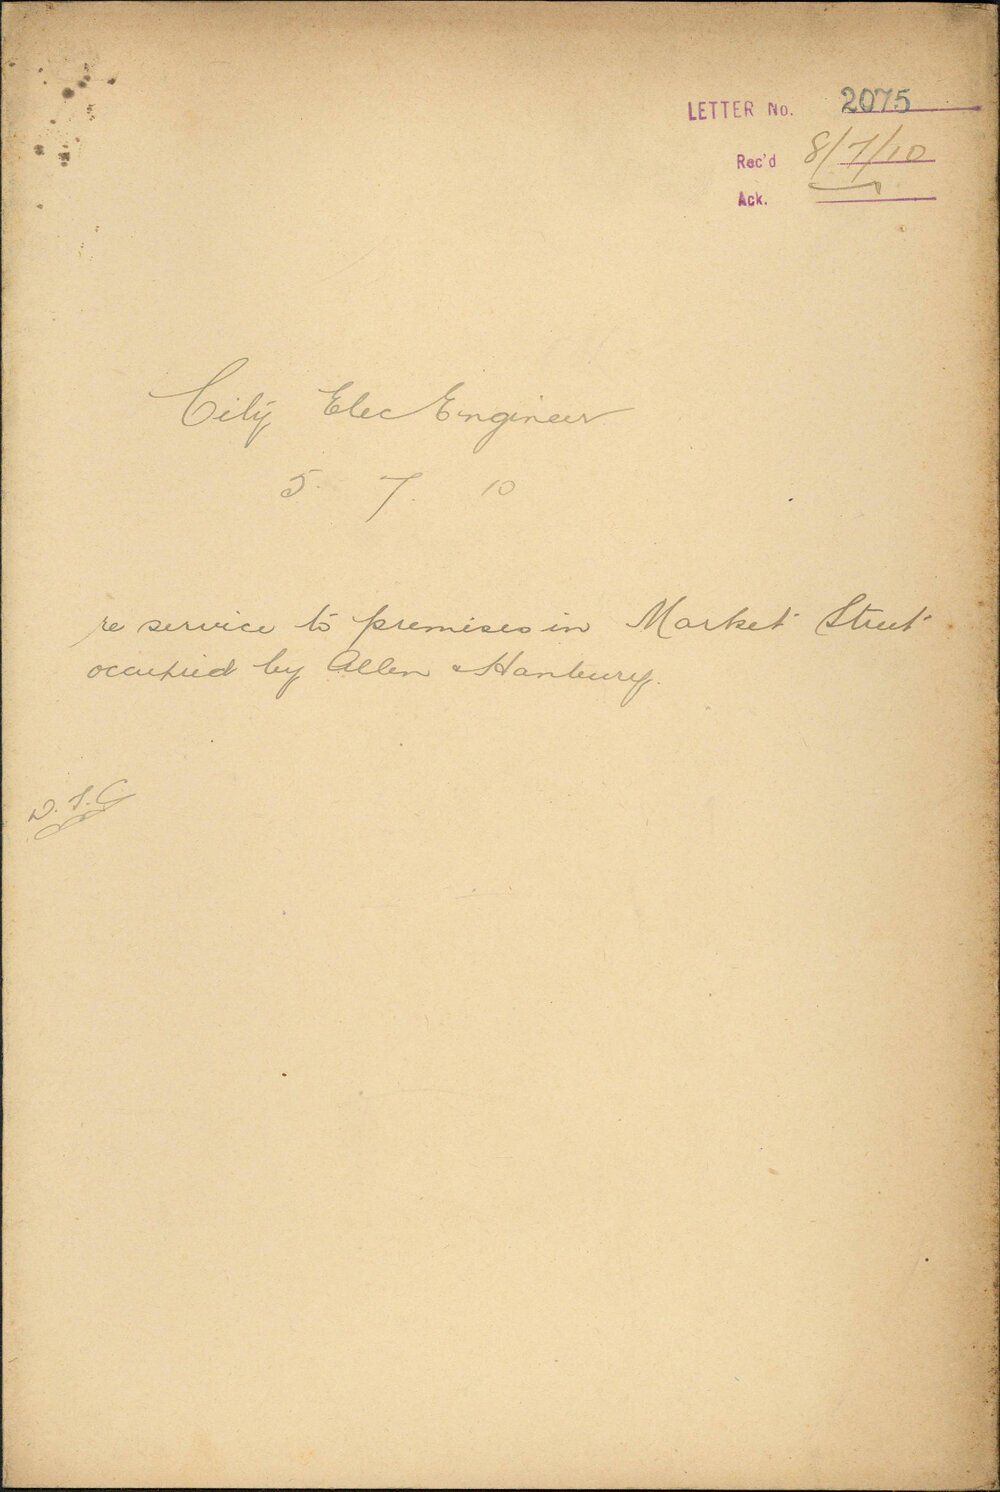 LETTER No. 2075
Rec'd 8/7/10
Ack.
City Elec Engineer
5. 7. 10
re service to premises in Market Street
occupied by Allen & Hanbury.